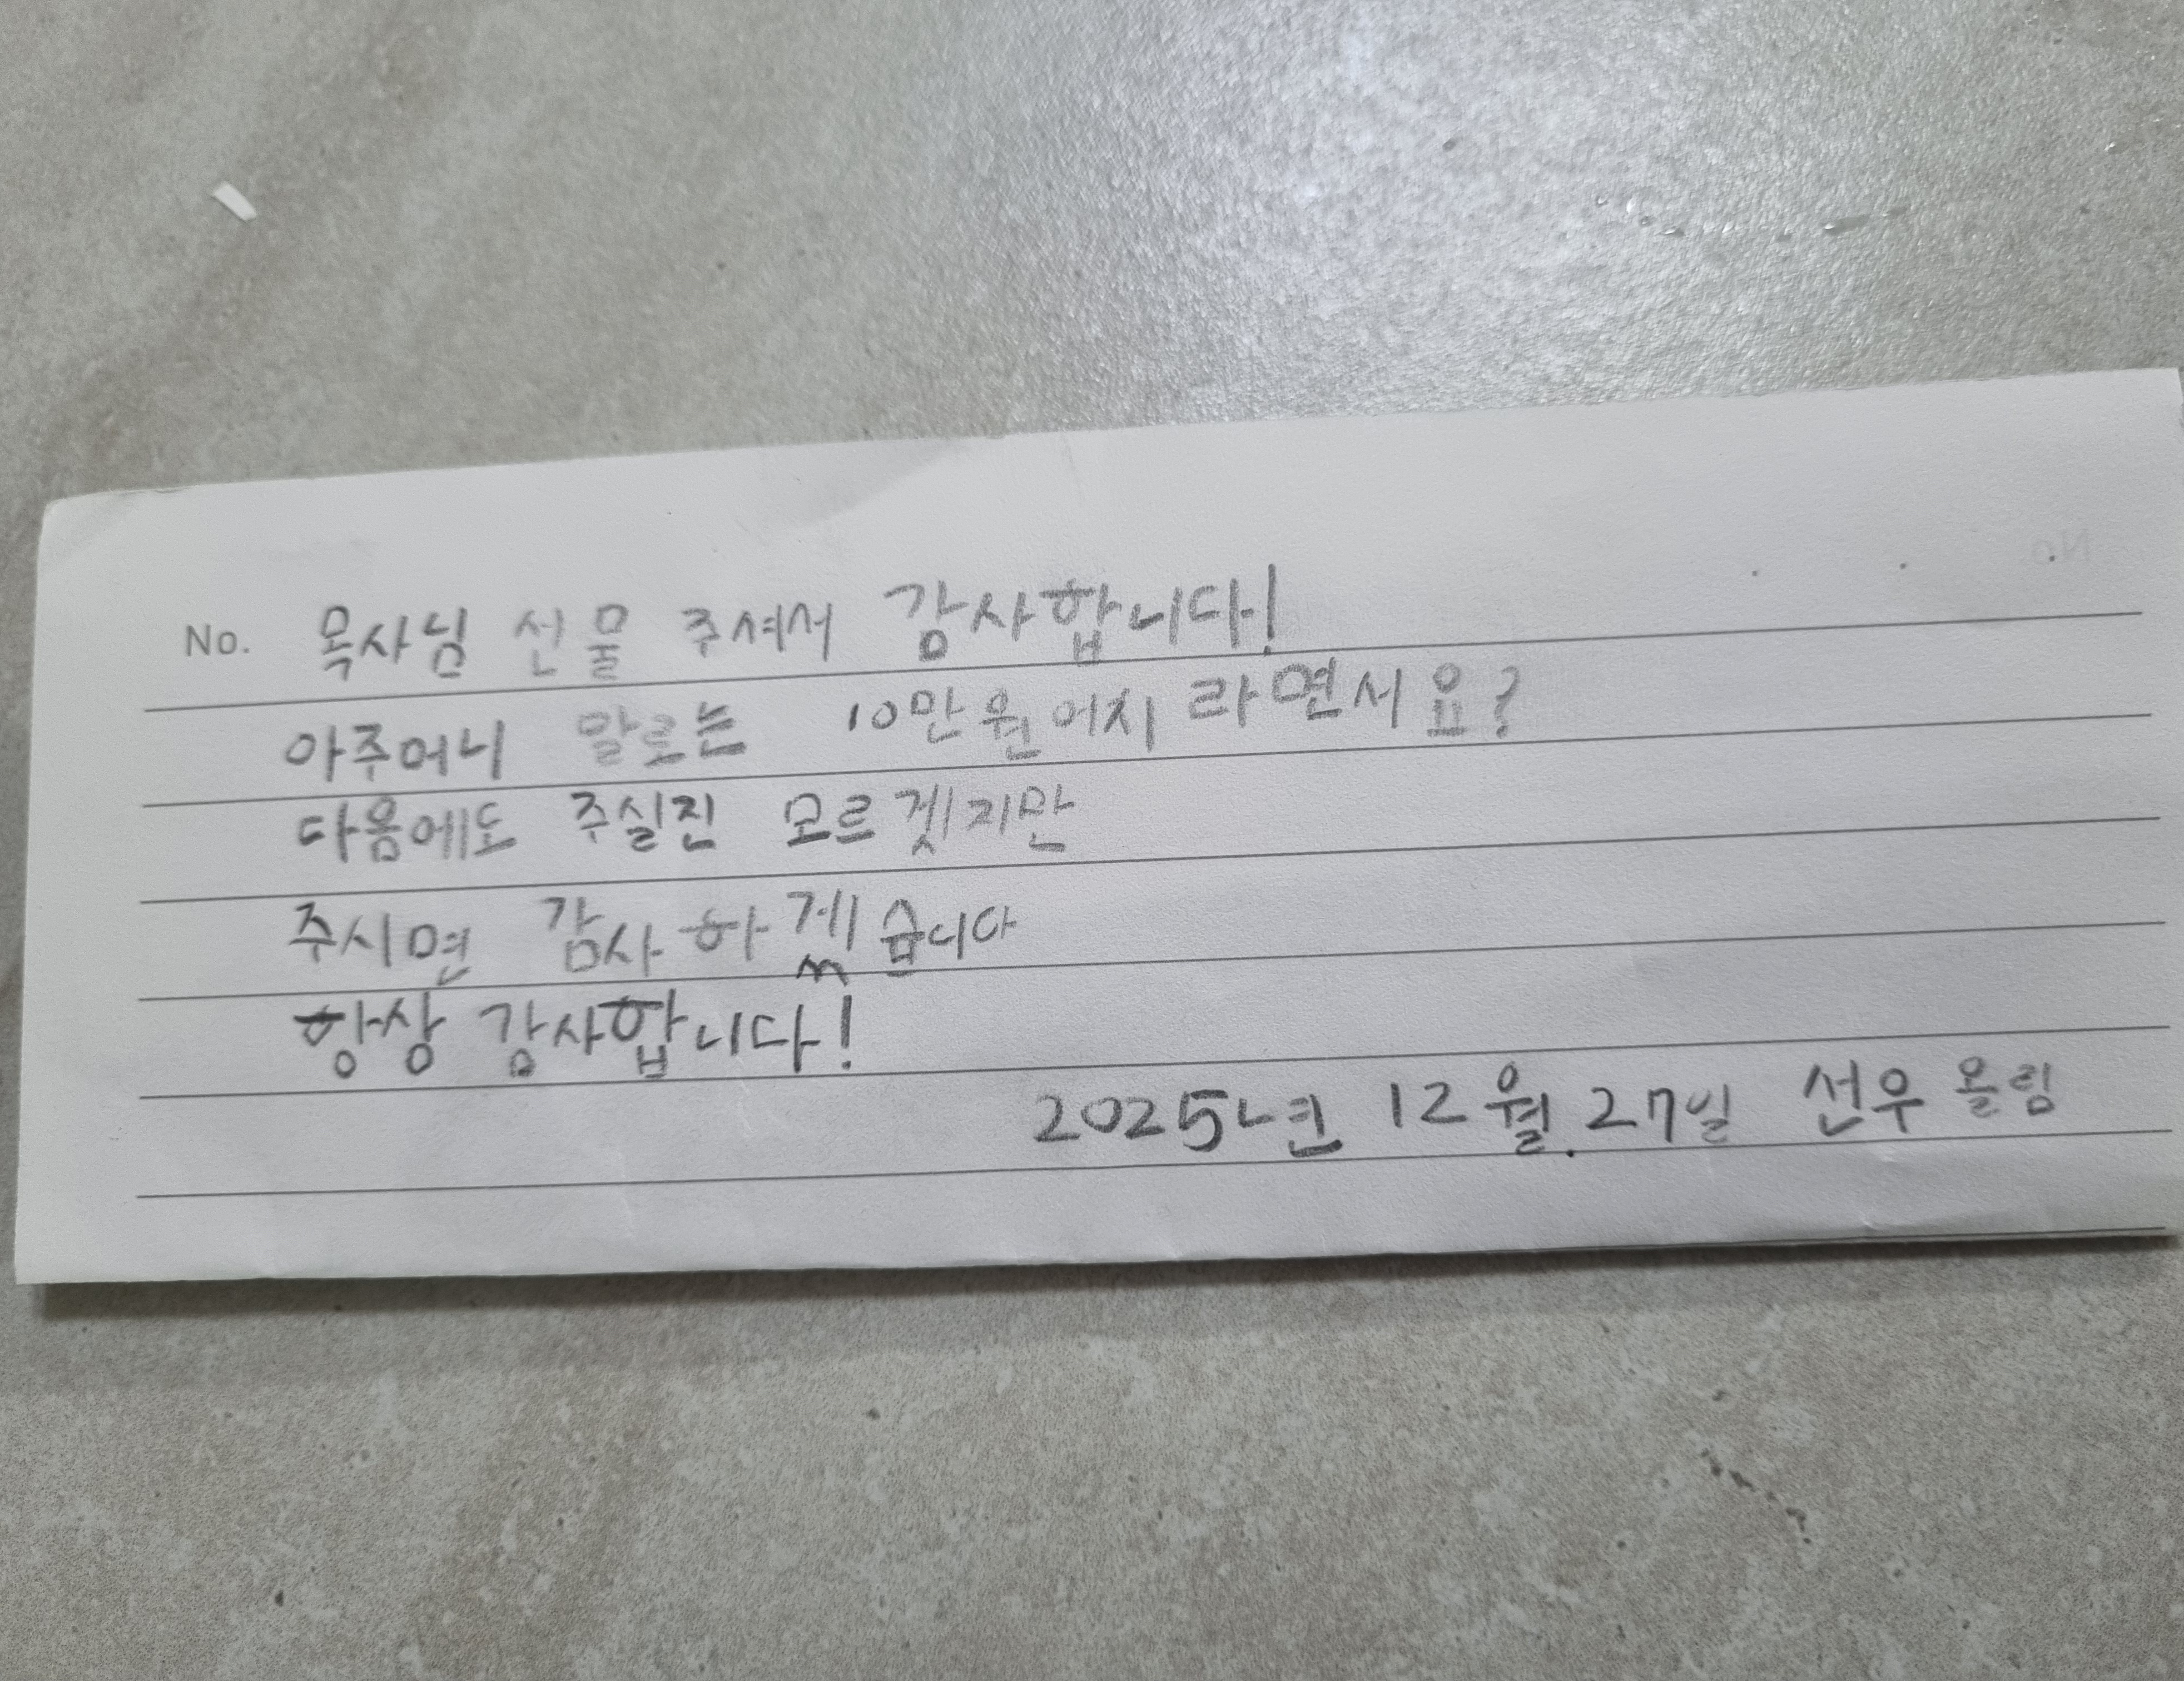 No. 목사님 선물 주셔서 감사합니다!
아주머니 말로는 10만원어치 라면서요?
다음에도 주실진 모르겟지만
주시면 감사하겠습니다
항상 감사합니다!
2025년 12월.27일 선우 올림